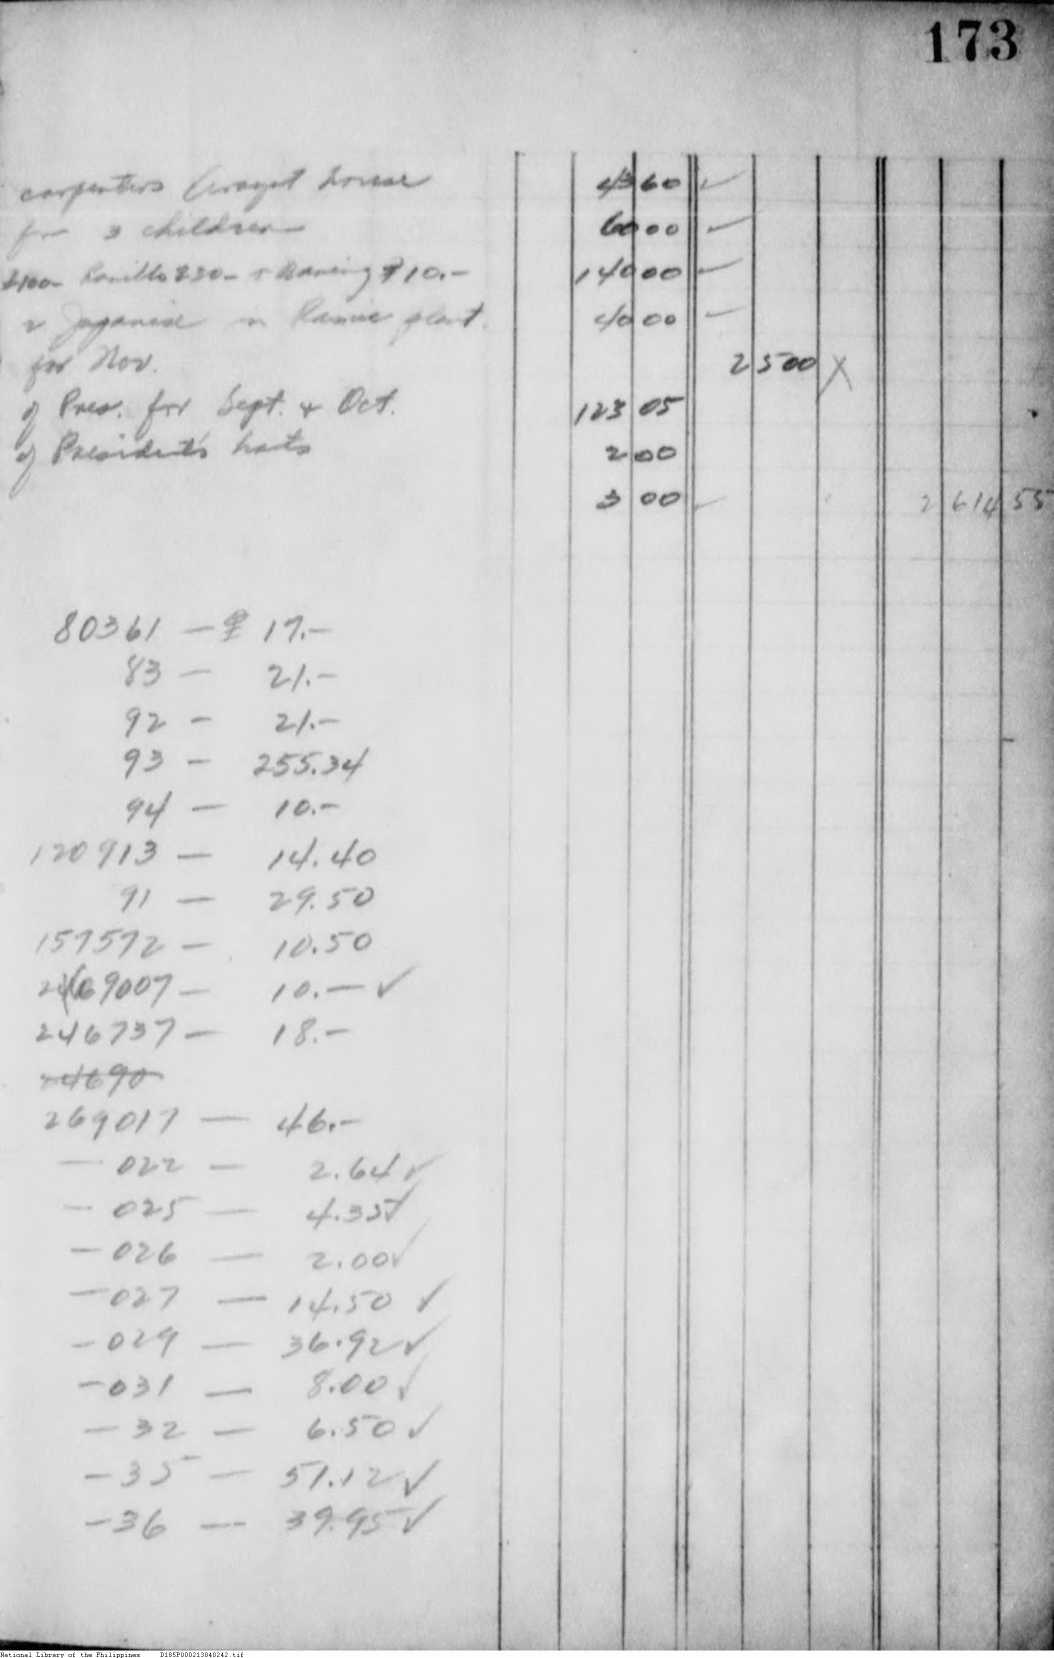 173
carpenters Arayat house 43 60 ✓
for 3 children 60 00 ✓
₱100- 230- + ₱10.- 140 00 ✓
2 Japanese in Ramie plant. 40 00 ✓
for Nov. 25 00 X
of Pres. for Sept. & Oct. 123 05
of President's hats 2 00
3 00 ✓ 2 614 55
80361 — ₱ 17.-
83 — 21.-
92 - 21.-
93 - 255.34
94 — 10.-
120913 — 14.40
91 — 29.50
157572 — 10.50
269007 — 10.— ✓
246737 — 18.-
24690
269017 — 46.-
— 022 — 2.64 ✓
- 025 — 4.35 ✓
- 026 — 2.00 ✓
- 027 — 14.50 ✓
- 029 — 36.92 ✓
- 031 — 8.00 ✓
- 32 — 6.50 ✓
- 35 — 51.12 ✓
- 36 — 39.95 ✓
National Library of the Philippines D185P000213840242.tif